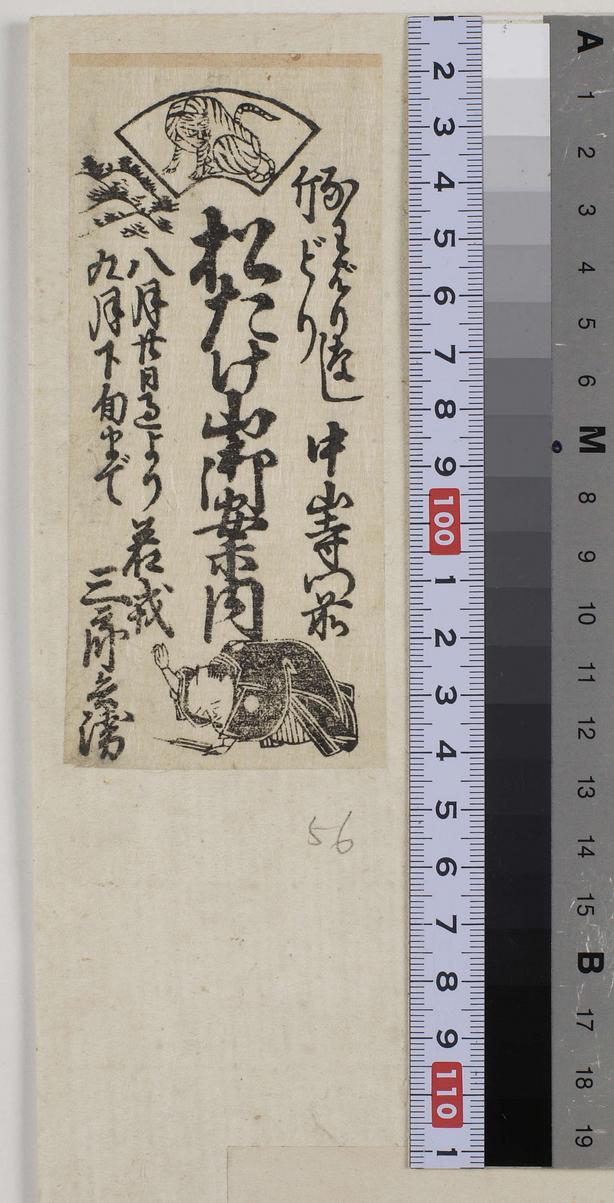 どり
中山寺門前
松たけ山御案内
八月廿日過より
九月下旬まで
若戎
三郎兵衛
56
1 2 3 4 5 6 7 8 9 100 1 2 3 4 5 6 7 8 9 110 1
A 1 2 3 4 5 6 M 8 9 10 11 12 13 14 15 B 17 18 19